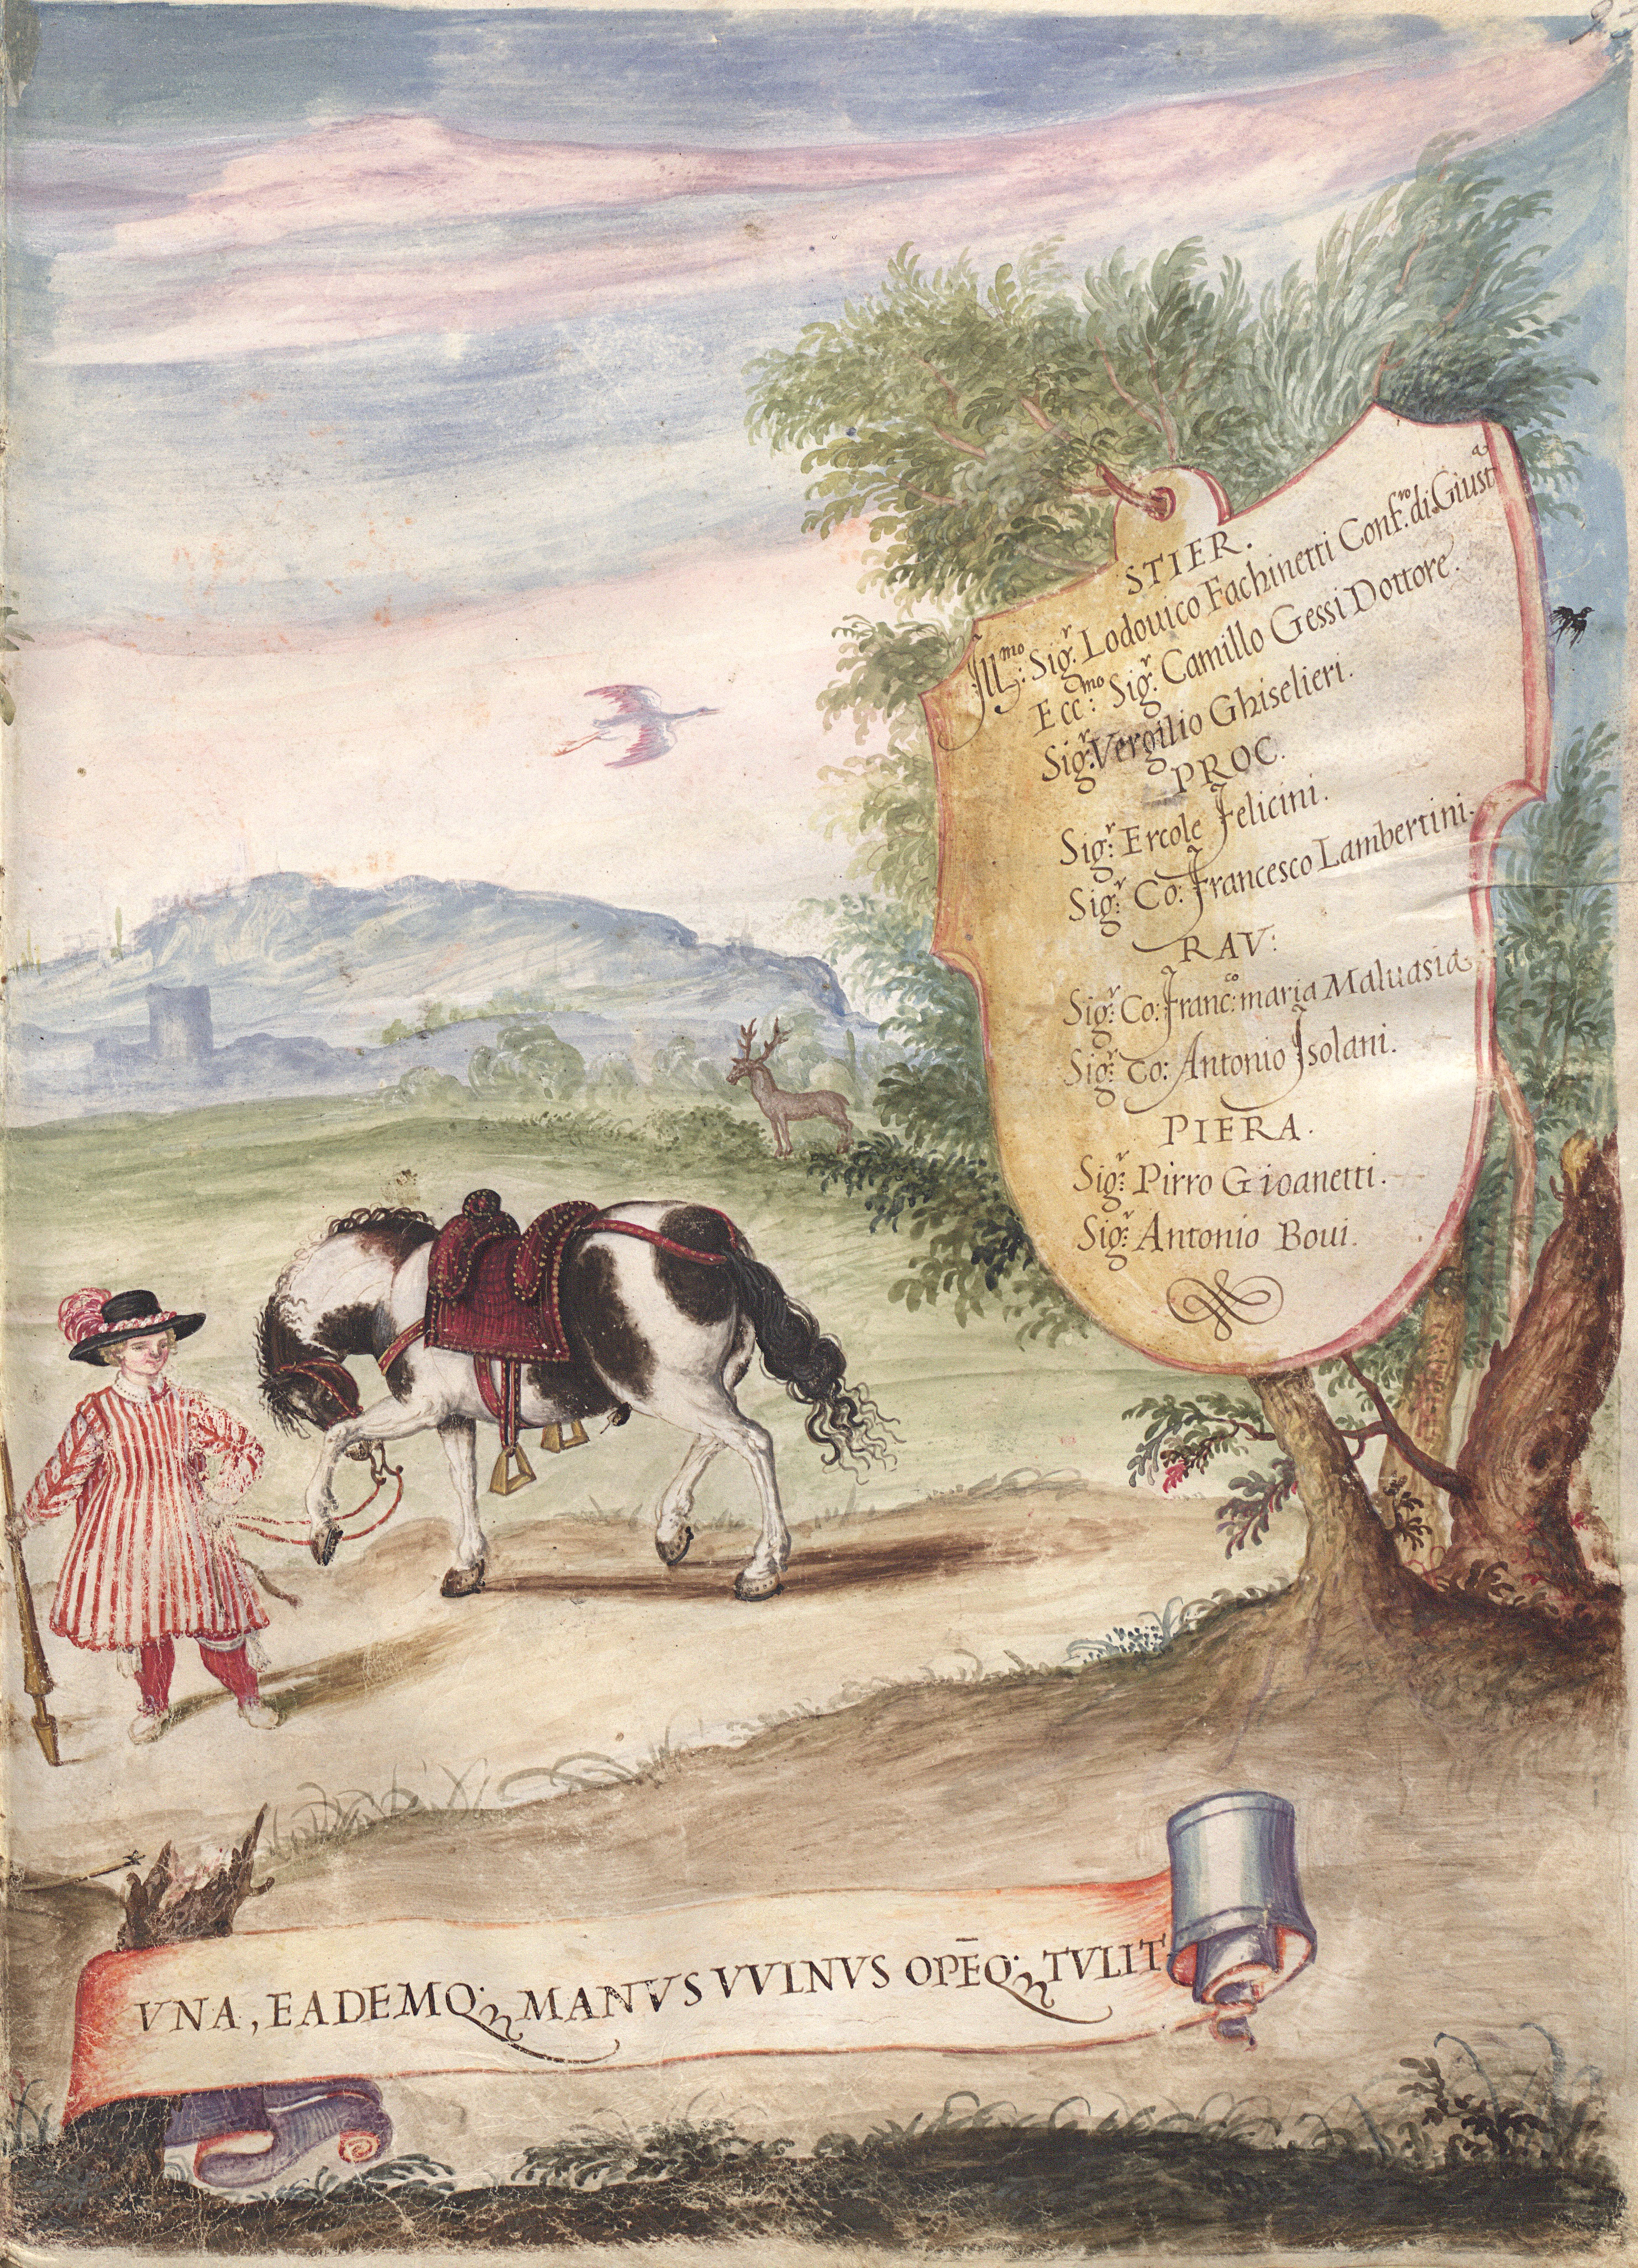 STIER.
Jll:mo Sig:r Lodouico Fachinetti Conf:ro di Giusta
Ecc:mo Sig:r Camillo Gessi Dottore.
Sig:r Vergilio Ghiselieri.
PROC.
Sig:r Ercole Felicini.
Sig:r Co: Francesco Lambertini.
RAV:
Sig:r Co: Franc:co maria Maluasia
Sig:r Co: Antonio Jsolani.
PIERA.
Sig:r Pirro Gioanetti.
Sig:r Antonio Boui.
VNA, EADEMQ; MANVS VVLNVS OPĒQ; TVLIT